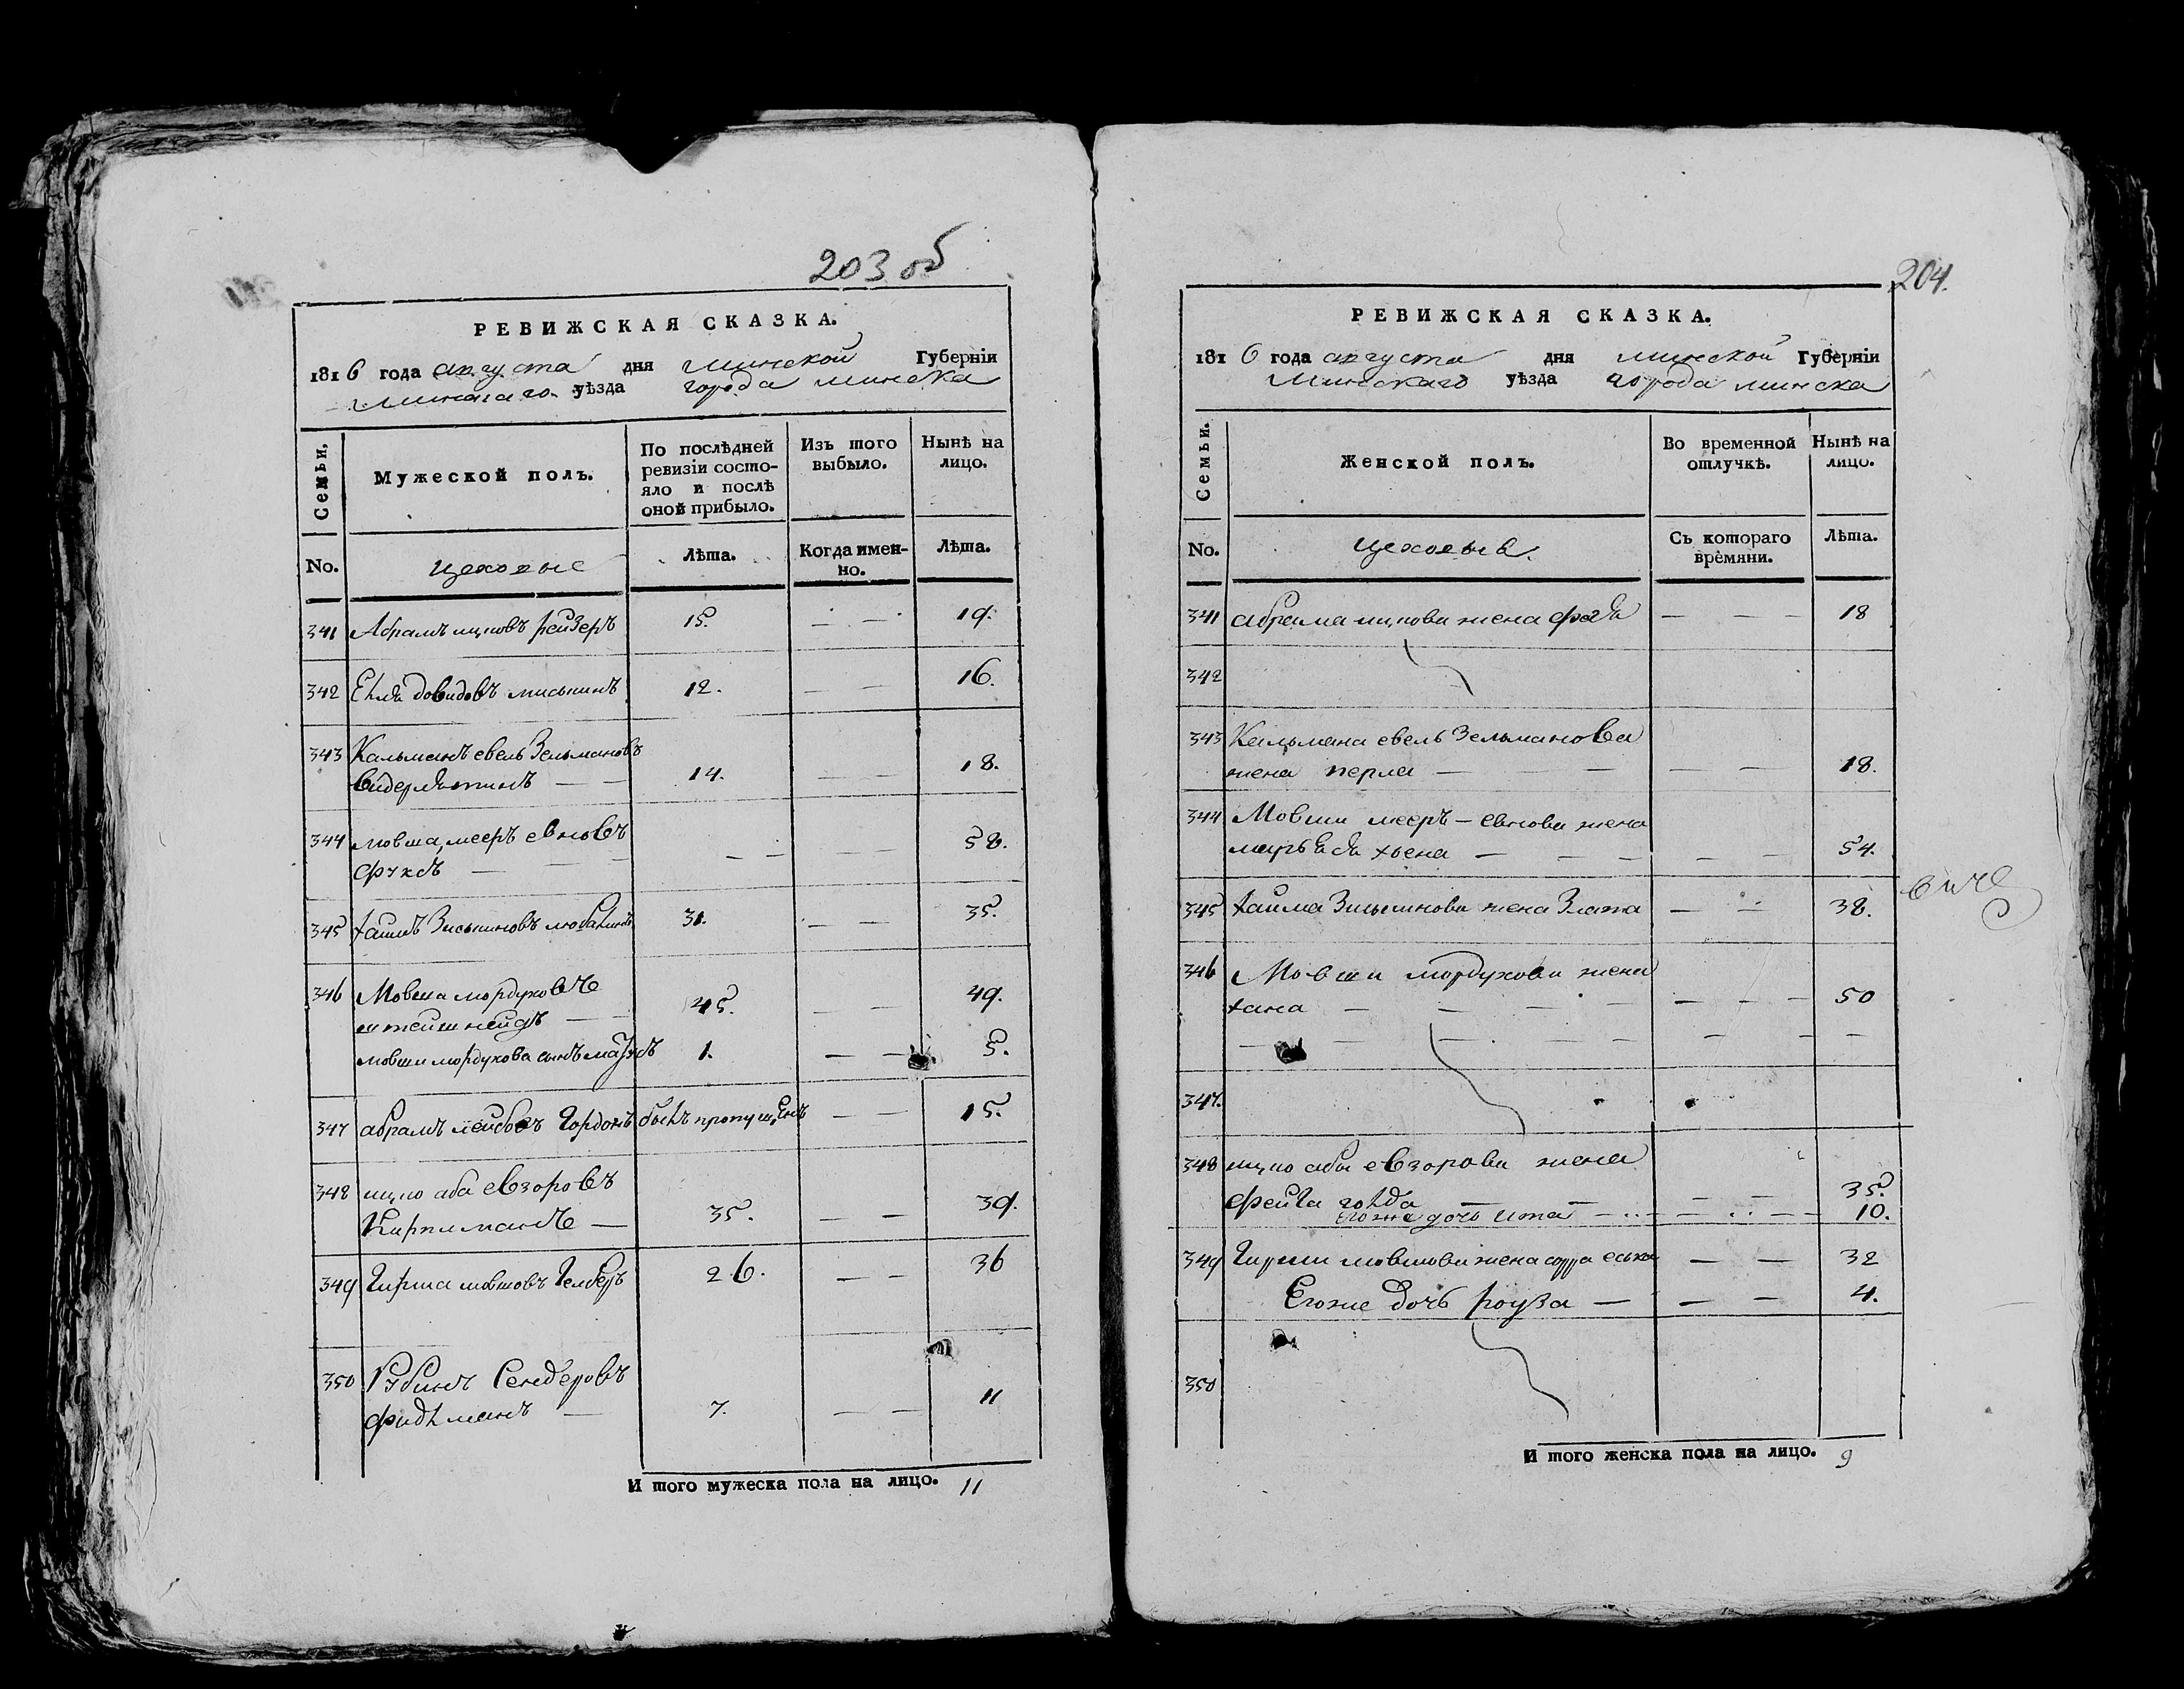 203 об
РЕВИЖСКАЯ СКАЗКА.
1816 года августа дня минской Губерніи
уѣзда города минска
Семьи.
Мужеской полъ.
По послѣдней ревизіи состо-яло и послѣ оной прибыло.
Изъ того выбыло.
Нынѣ на лицо.
No.
цеховые
Лѣта.
Когда имен-но.
Лѣта.
341 Абрамъ ицковъ рейзеръ 15. — — 19.
342 довидовъ 12. — — 16.
343 Кальманъ евель Зельмановъ
14. — — 18.
344 мовша мееръ евновъ
фуксъ — — — — — — 58.
345 хаимъ 31. — — 35.
346 Мовша мордуховъ
— 45. — — 49.
мовши мордухова сынъ 1. — — 5.
347 абрамъ лейбовъ Гордонъ былъ пропущенъ — — 15.
348 ицко аба евзоровъ
— 35. — — 39.
349 Гирша мовшовъ 26. — — 36
350 Рубинъ Сендеровъ
фидлманъ — 7. — — 11
И того мужеска пола на лицо. 11
204.
РЕВИЖСКАЯ СКАЗКА.
1816 года августа дня минской Губерніи
Минскаго уѣзда города минска
Семьи.
Женской полъ.
Во временной отлучкѣ.
Нынѣ на лицо.
No.
цеховые.
Съ котораго времяни.
Лѣта.
341 абрама ицкова жена — — — 18
342
343 Кальмана евель Зельманова
жена перла — — — — — 18.
344 Мовши мееръ — евнова жена
хьена — — — — — 54.
345 хаима жена Злата — — 38.
346 Мовши мордухова жена
хана — — — — — — — 50
347.
348 ицко аба евзорова жена
фейга голда — — — — 35.
его же дочь ита — — — 10.
349 Гирши мовшова жена сорра — — 32
Егоже дочь роуза — — — 4.
350
И того женска пола на лицо. 9